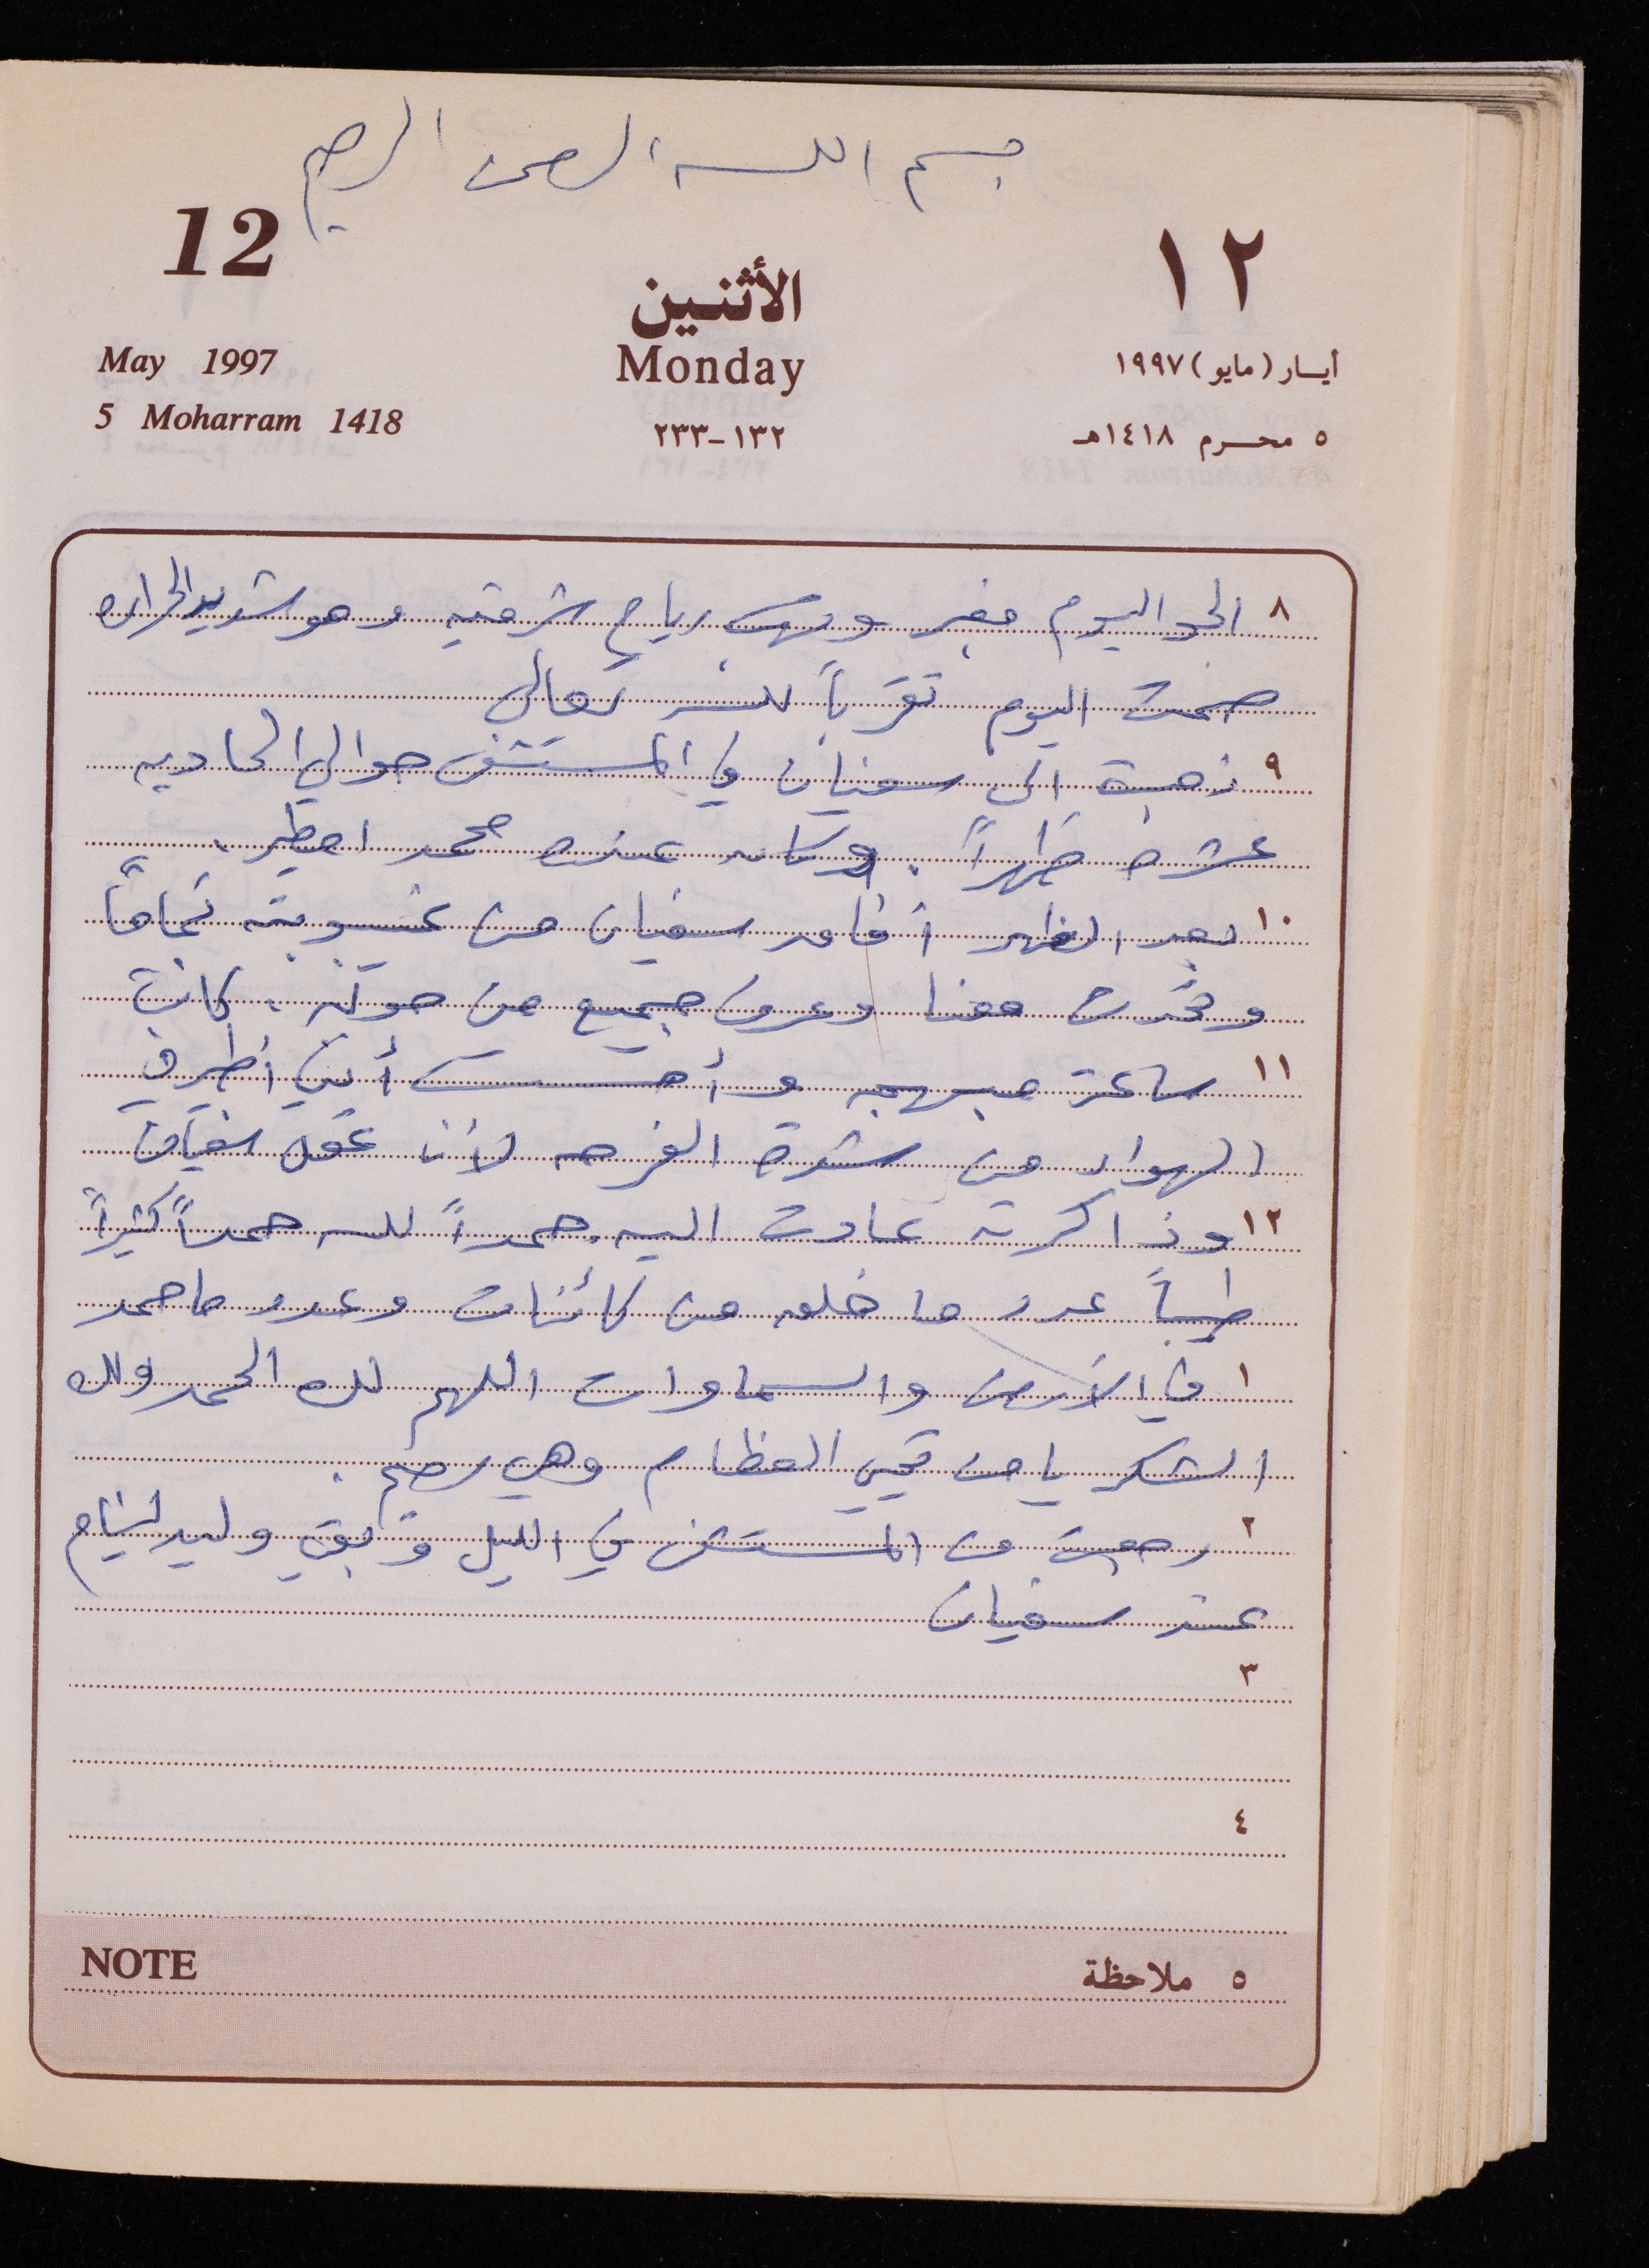 بسم الله الرحمن الرحيم
12
١٢
الأثنين
May 1997
Monday
أيسار (مايو) ١٩٩٧
5 Moharram 1418
١٣٢-٢٣٣
٥ محرم ١٤١٨هـ
٨ الجو اليوم مغبر وتهب رياح شرقيه وهو شديد الحراره
صمت اليوم تقرباً لله تعالى
٩ ذهبت الى سفيان في المستشفى حوالي الحاديه
عشره ظهراً. وكان عنده محمد امطير.
١٠ بعد الظهر افاق سفيان من غيبوبته تماماً
وتحدث معنا وعرف جميع من حوله. كانت
١١ ساعة مبهجه وأحسست أنني اطير في
الهواء من شدة الفرحه لأن عقل سفيان
١٢ وذاكرته عادت اليه. حمداً لله حمداً كثيراً
طيباً عدد ما خلق من كائنات وعدد ما حمد
١ في الأرض والسماوات اللهم لك الحمد ولك
الشكر يا من تحيي العظام وهي رميم.
٢ رجعت من المستشفى في الليل وبقي وليد لينام
عند سفيان
٣
٤
NOTE
٥ ملاحظة